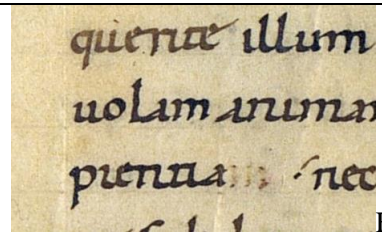 querite illum
uolam animam
pientiam nec